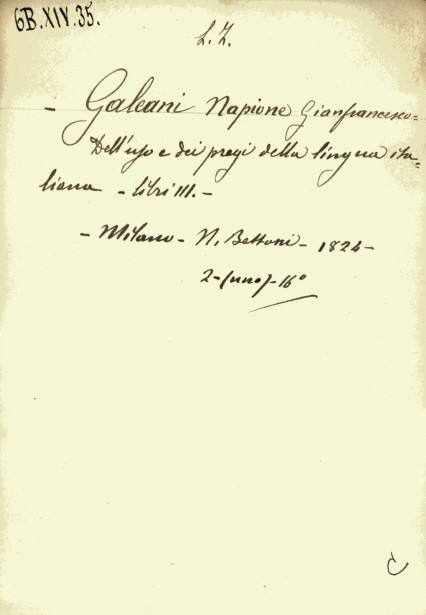 6B.XIV.35.
L. Z.
- Galeani Napione Gianfrancesco=
Dell'uso e dei pregi della lingua ita=
liana - libri III. -
- Milano - N. Bettoni - 1824 -
2 - (uno) - 16°
C